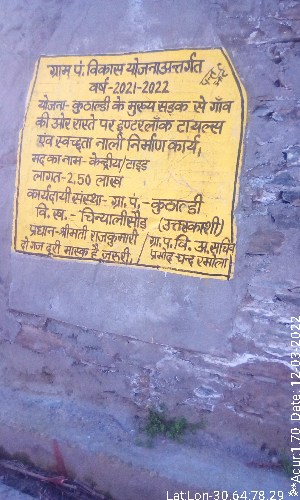 ग्राम पं. विकास योजनाअन्तर्गत
वर्ष-2021-2022
योजना- कुठाल्डी के मुख्य सड़क से गाँव
की ओर रास्ते पर इण्टरलॉक टायल्स
एंव स्वच्छता नाली निर्माण कार्य,
मद का नाम- केन्द्रीय/टाइड
लागत-2.50 लाख
कार्यदायी संस्था- ग्रा. पं.,- कुठाल्डी
वि. ख.- चिन्यालीसौड़ (उत्तरकाशी)
प्रधान-श्रीमती राजकुमारी / ग्रा.पं.वि. अ. सचिव
दो गज दूरी मास्क है जरूरी / प्रमोद चन्द रमोला
Lat:Lon-30.64:78.29
**Acur:1.70 Date: 12-03-2022